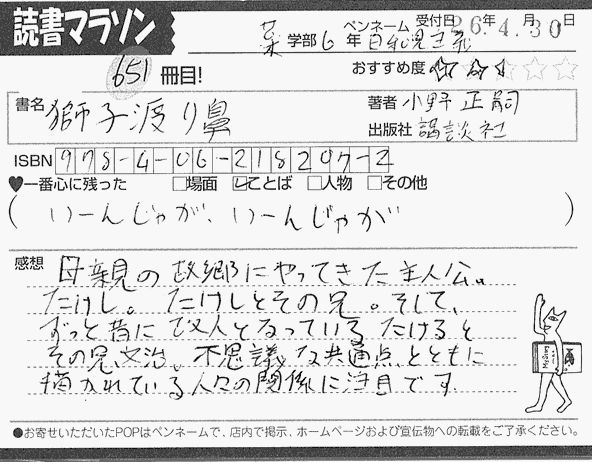 読書マラソン
薬学部6年 ペンネーム 日和見主義 受付日 26年4月30日
651冊目! おすすめ度 ☆☆☆☆☆
書名 獅子渡り鼻 著者 小野正嗣
出版社 講談社
ISBN 978-4-06-218207-2
♥一番心に残った □場面 ☑ことば □人物 □その他
(いーんじゃが、いーんじゃが)
感想 母親の故郷にやってきた主人公。
たけし。たけしとその兄。そして、
ずっと昔に故人となっている たけると
その兄文治。不思議な共通点とともに
描かれている人々の関係に注目です
●お寄せいただいたPOPはペンネームで、店内で掲示、ホームページおよび宣伝物への転載をご了承ください。